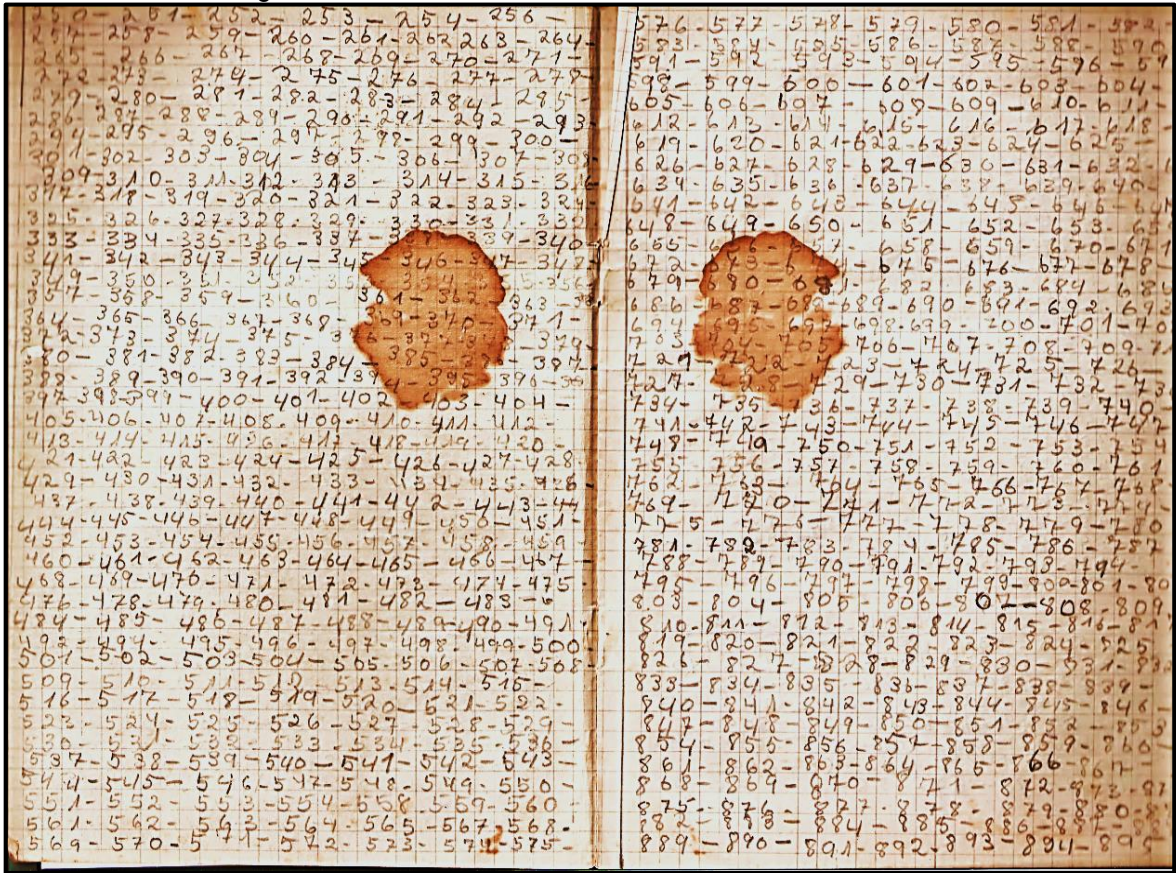 250 - 251 - 252 - 253 - 254 - 256 -
257 - 258 - 259 - 260 - 261 - 262 263 - 264 -
265 - 266 - 267 - 268 - 269 - 270 - 271 -
272 - 273 - 274 - 275 - 276 - 277 - 278 -
279 - 280 - 281 - 282 - 283 - 284 - 285 -
286 - 287 - 288 - 289 - 290 - 291 - 292 - 293 -
294 - 295 - 296 - 297 - 298 - 299 - 300 -
301 - 302 - 303 - 304 - 305 - 306 - 307 - 308
309 - 310 - 311 - 312 - 313 - 314 - 315 - 316
317 - 318 - 319 - 320 - 321 - 322 - 323 - 324 -
325 - 326 - 327 - 328 - 329 - 330 - 331 - 332
333 - 334 - 335 - 336 - 337 - 339 - 340 -
341 - 342 - 343 - 344 - 345 - 346 - 347 - 348
349 - 350
357 - 358 - 359 - 360 - 361 - 362 363
364 - 365 - 366 - 367 - 368 - 369 - 370 - 371 -
373 - 374 - 375 - 379
380 - 381 - 382 - 383 - 384 - 385 - 387
388 - 389 - 390 - 391 - 392 - 395 - 396 -
397 - 398 - 399 - 400 - 401 - 402 403 - 404 -
405 - 406 - 407 - 408 - 409 - 410 - 411 - 412 -
413 - 414 - 415 - 416 - 417 - 418 - 419 - 420 -
421 - 422 - 423 - 424 - 425 - 426 - 427 - 428
429 - 430 - 431 - 432 - 433 - 434 - 435 -
437 - 438 - 439 - 440 - 441 - 442 - 443 - 44
444 - 445 - 446 - 447 - 448 - 449 - 450 - 451 -
452 - 453 - 454 - 455 - 456 - 457 - 458 - 459 -
460 - 461 - 462 - 463 - 464 - 465 - 466 - 467 -
468 - 469 - 470 - 471 - 472 - 473 - 474 - 475
476 - 478 - 479 - 480 - 481 - 482 - 483 -
484 - 485 - 486 - 487 - 488 - 489 - 490 - 491 -
492 - 494 - 495 - 496 - 497 - 498 - 499 - 500
501 - 502 - 503 - 504 - 505 - 506 - 507 - 508
509 - 510 - 511 - 512 - 513 - 514 - 515 -
516 - 517 - 518 - 519 - 520 - 521 - 522 -
523 - 524 - 525 - 526 - 527 - 528 - 529 -
530 - 531 - 532 - 533 - 534 - 535 - 536 -
537 - 538 - 539 - 540 - 541 - 542 - 543 -
544 - 545 - 546 - 547 - 548 - 549 - 550 -
551 - 552 - 553 - 554 - 558 - 559 - 560 -
561 - 562 - 563 - 564 - 565 - 567 - 568 -
569 - 570 - 571 - 572 - 573 - 574 - 575 -
576 - 577 - 578 - 579 - 580 - 581 - 582
583 - 584 - 585 - 586 - 587 - 588 - 590
591 - 592 - 593 - 594 - 595 - 596 - 59
598 - 599 - 600 - 601 - 602 - 603 - 604 -
605 - 606 - 607 - 608 - 609 - 610 - 611 -
612 - 613 - 614 - 615 - 616 - 617 - 618
619 - 620 - 621 - 622 - 623 - 624 - 625 -
626 - 627 - 628 - 629 - 630 - 631 - 632
634 - 635 - 636 - 637 - 638 - 639 - 640 -
641 - 642 - 643 - 644 - 645 - 646 - 64
648 - 649 - 650 - 651 - 652 - 653 - 65
655 - 658 - 659 - 670 - 67
672 - 675 - 676 - 677 - 678 -
679 - 680 - 681 - 682 - 683 - 684 - 68
686 - 687 - 688 - 689 - 690 - 691 - 692 - 69
694 - 695 - 697 - 698 - 699 - 700 - 701 - 70
706 - 707 - 708 - 709 -
721 - 722 - 723 - 724 - 725 - 726 -
727 - 728 - 729 - 730 - 731 - 732 - 73
734 - 735 - 736 - 737 - 738 - 739 - 740
741 - 742 - 743 - 744 - 745 - 746 - 747
748 - 749 - 750 - 751 - 752 - 753 - 754
755 - 756 - 757 - 758 - 759 - 760 - 761
762 - 763 - 764 - 765 - 766 - 767 - 768
769 - 770 - 771 - 772 - 773 - 774
775 - 776 - 777 - 778 - 779 - 780
781 - 782 - 783 - 784 - 785 - 786 - 787
788 - 789 - 790 - 791 - 792 - 793 - 794 -
795 - 796 - 797 - 798 - 799 - 800 - 801 - 80
803 - 804 - 805 - 806 - 807 - 808 - 809
810 - 811 - 812 - 813 - 814 - 815 - 816 - 81
819 - 820 - 821 - 822 - 823 - 824 - 825
826 - 827 - 828 - 829 - 830 - 831 - 83
833 - 834 - 835 - 836 - 837 - 838 - 839 -
840 - 841 - 842 - 843 - 844 - 845 - 846
847 - 848 - 849 - 850 - 851 - 852 - 853
854 - 855 - 856 - 857 - 858 - 859 - 860 -
861 - 862 - 863 - 864 - 865 - 866 - 867 -
868 - 869 - 870 - 871 - 872 - 873 - 87
875 - 876 - 877 - 878 - 879 - 880 - 8
882 - 883 - 884 - 885 - 886 - 887 - 88
889 - 890 - 891 - 892 - 893 - 894 - 895